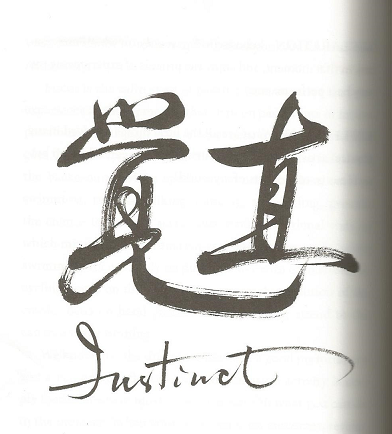 直覚
Instinct